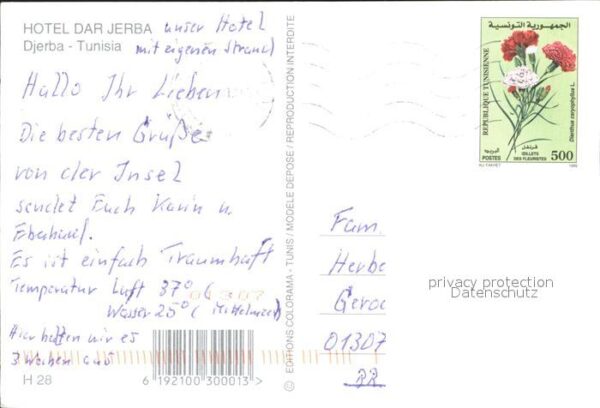 HOTEL DAR JERBA
Djerba - Tunisia
unser Hotel
mit eigenen Strand
Hallo Ihr Lieben
Die besten Grüße
von der Insel
sendet Euch Karin u.
Eberhard.
Es ist einfach Traumhaft
Temperatur Luft 37°
Wasser 25° (Mittelmeer)
Hier halten wir es
3 Wochen aus
H 28
6 192100 300013 >
© EDITIONS COLORAMA - TUNIS / MODELE DEPOSE / REPRODUCTION INTERDITE
الجمهورية التونسية
REPUBLIQUE TUNISIENNE
Dianthus caryophyllus L.
البريد
قرنفل
POSTES
ŒILLETS
DES FLEURISTES
500
Fam.
Herbe
Geroc
01307
privacy protection
Datenschutz